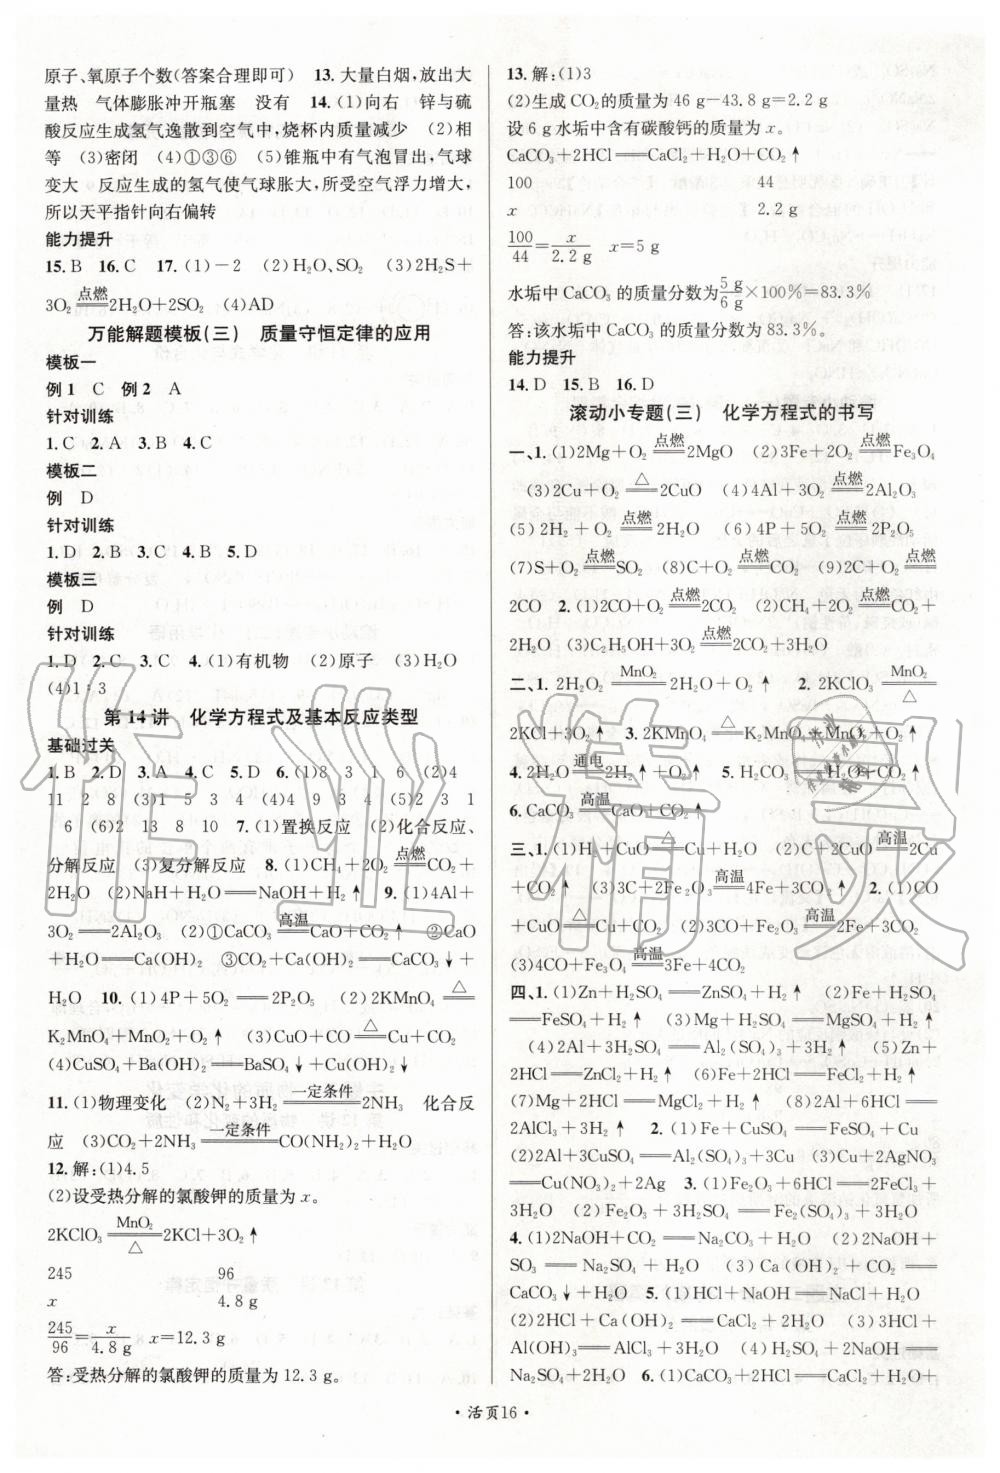 原子、氧原子个数(答案合理即可)　13. 大量白烟,放出大
量热　气体膨胀冲开瓶塞　没有　14. (1)向右　锌与硫
酸反应生成氢气逸散到空气中,烧杯内质量减少　(2)相
等　(3)密闭　(4)①③⑥　(5)锥瓶中有气泡冒出,气球
变大　反应生成的氢气使气球胀大,所受空气浮力增大,
所以天平指针向右偏转
能力提升
15. B　16. C　17. (1)－2　(2)H₂O、SO₂　(3)2H₂S＋
3O₂ ══点燃══ 2H₂O＋2SO₂　(4)AD
万能解题模板(三)　质量守恒定律的应用
模板一
例 1　C　例 2　A
针对训练
1. C　2. A　3. B　4. C
模板二
例　D
针对训练
1. D　2. B　3. C　4. B　5. D
模板三
例　D
针对训练
1. D　2. C　3. C　4. (1)有机物　(2)原子　(3)H₂O
(4)1∶3
第 14 讲　化学方程式及基本反应类型
基础过关
1. B　2. D　3. A　4. C　5. D　6. (1)8　3　1　6　(2)4
11　2　8　(3)1　5　3　4　(4)4　9　3　4　(5)2　3　1
6　(6)2　13　8　10　7. (1)置换反应　(2)化合反应、
分解反应　(3)复分解反应　8. (1)CH₄＋2O₂ ══点燃══ CO₂＋
2H₂O　(2)NaH＋H₂O ══ NaOH＋H₂↑　9. (1)4Al＋
3O₂ ══ 2Al₂O₃　(2)①CaCO₃ ══高温══ CaO＋CO₂↑　②CaO
＋H₂O ══ Ca(OH)₂　③CO₂＋Ca(OH)₂ ══ CaCO₃↓＋
H₂O　10. (1)4P＋5O₂ ══ 2P₂O₅　(2)2KMnO₄ ══△══
K₂MnO₄＋MnO₂＋O₂↑　(3)CuO＋CO ══△══ Cu＋CO₂
(4)CuSO₄＋Ba(OH)₂ ══ BaSO₄↓＋Cu(OH)₂↓
11. (1)物理变化　(2)N₂＋3H₂ ══一定条件══ 2NH₃　化合反
应　(3)CO₂＋2NH₃ ══一定条件══ CO(NH₂)₂＋H₂O
12. 解:(1)4.5
(2)设受热分解的氯酸钾的质量为 x。
2KClO₃ ══MnO₂ △══ 2KCl＋3O₂↑
245　96
x　4.8 g
245/96＝x/4.8 g　x＝12.3 g
答:受热分解的氯酸钾的质量为 12.3 g。
13. 解:(1)3
(2)生成 CO₂ 的质量为 46 g－43.8 g＝2.2 g
设 6 g 水垢中含有碳酸钙的质量为 x。
CaCO₃＋2HCl ══ CaCl₂＋H₂O＋CO₂↑
100　44
x　2.2 g
100/44＝x/2.2 g　x＝5 g
水垢中 CaCO₃ 的质量分数为 5 g/6 g×100%＝83.3%
答:该水垢中 CaCO₃ 的质量分数为 83.3%。
能力提升
14. D　15. B　16. D
滚动小专题(三)　化学方程式的书写
一、1. (1)2Mg＋O₂ ══点燃══ 2MgO　(2)3Fe＋2O₂ ══点燃══ Fe₃O₄
(3)2Cu＋O₂ ══△══ 2CuO　(4)4Al＋3O₂ ══点燃══ 2Al₂O₃
(5)2H₂＋O₂ ══点燃══ 2H₂O　(6)4P＋5O₂ ══点燃══ 2P₂O₅
(7)S＋O₂ ══点燃══ SO₂　(8)C＋O₂ ══点燃══ CO₂　(9)2C＋O₂ ══点燃══
2CO　2. (1)2CO＋O₂ ══点燃══ 2CO₂　(2)CH₄＋2O₂ ══点燃══ CO₂＋
2H₂O　(3)C₂H₅OH＋3O₂ ══点燃══ 2CO₂＋3H₂O
二、1. 2H₂O₂ ══MnO₂══ 2H₂O＋O₂↑　2. 2KClO₃ ══MnO₂ △══
2KCl＋3O₂↑　3. 2KMnO₄ ══△══ K₂MnO₄＋MnO₂＋O₂↑
4. 2H₂O ══通电══ 2H₂↑＋O₂↑　5. H₂CO₃ ══ H₂O＋CO₂↑
6. CaCO₃ ══高温══ CaO＋CO₂↑
三、1. (1)H₂＋CuO ══△══ Cu＋H₂O　(2)C＋2CuO ══高温══ 2Cu
＋CO₂↑　(3)3C＋2Fe₂O₃ ══高温══ 4Fe＋3CO₂↑　2. (1)CO
＋CuO ══△══ Cu＋CO₂　(2)3CO＋Fe₂O₃ ══高温══ 2Fe＋3CO₂
(3)4CO＋Fe₃O₄ ══高温══ 3Fe＋4CO₂
四、1. (1)Zn＋H₂SO₄ ══ ZnSO₄＋H₂↑　(2)Fe＋H₂SO₄
══ FeSO₄＋H₂↑　(3)Mg＋H₂SO₄ ══ MgSO₄＋H₂↑
(4)2Al＋3H₂SO₄ ══ Al₂(SO₄)₃＋3H₂↑　(5)Zn＋
2HCl ══ ZnCl₂＋H₂↑　(6)Fe＋2HCl ══ FeCl₂＋H₂↑
(7)Mg＋2HCl ══ MgCl₂＋H₂↑　(8)2Al＋6HCl ══
2AlCl₃＋3H₂↑　2. (1)Fe＋CuSO₄ ══ FeSO₄＋Cu
(2)2Al＋3CuSO₄ ══ Al₂(SO₄)₃＋3Cu　(3)Cu＋2AgNO₃
══ Cu(NO₃)₂＋2Ag　3. (1)Fe₂O₃＋6HCl ══ 2FeCl₃＋
3H₂O　(2)Fe₂O₃＋3H₂SO₄ ══ Fe₂(SO₄)₃＋3H₂O
4. (1)2NaOH＋CO₂ ══ Na₂CO₃＋H₂O　(2)2NaOH＋
SO₃ ══ Na₂SO₄＋H₂O　(3)Ca(OH)₂＋CO₂ ══
CaCO₃↓＋H₂O　5. (1)HCl＋NaOH ══ NaCl＋H₂O
(2)2HCl＋Ca(OH)₂ ══ CaCl₂＋2H₂O　(3)3HCl＋
Al(OH)₃ ══ AlCl₃＋3H₂O　(4)H₂SO₄＋2NaOH ══
Na₂SO₄＋2H₂O　6. (1)Na₂CO₃＋2HCl ══ 2NaCl＋H₂O＋
• 活页16 •
作业精灵